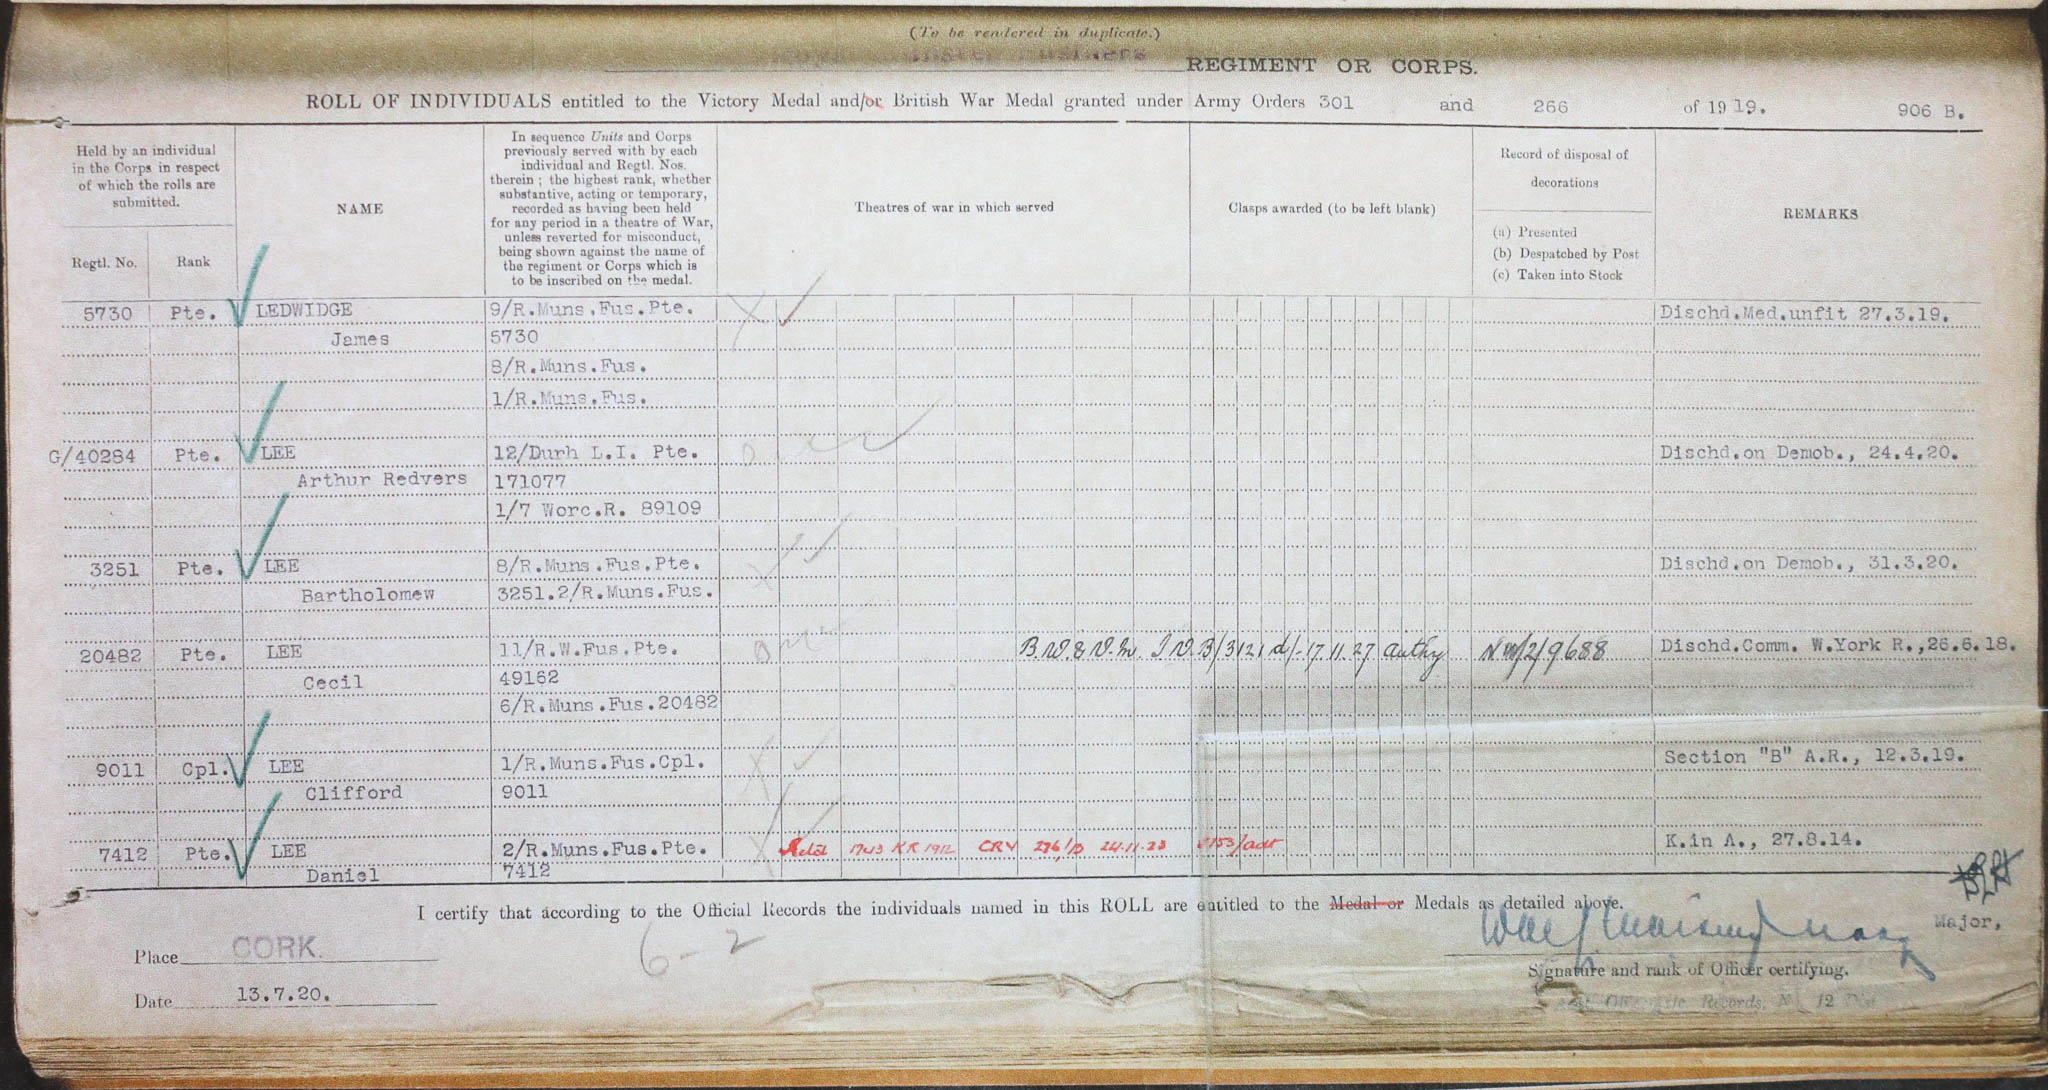 (To be rendered in duplicate.)
REGIMENT OR CORPS.
ROLL OF INDIVIDUALS entitled to the Victory Medal and/or British War Medal granted under Army Orders 301 and 266 of 1919. 906 B.
Held by an individual in the Corps in respect of which the rolls are submitted.
Regtl. No.
Rank
NAME
In sequence Units and Corps
previously served with by each
individual and Regtl. Nos.
therein ; the highest rank, whether
substantive, acting or temporary,
recorded as having been held
for any period in a theatre of War,
unless reverted for misconduct,
being shown against the name of
the regiment or Corps which is
to be inscribed on the medal.
Theatres of war in which served
Clasps awarded (to be left blank)
Record of disposal of
decorations
(a) Presented
(b) Despatched by Post
(c) Taken into Stock
REMARKS
5730 Pte. LEDWIDGE 9/R.Muns.Fus.Pte. Dischd.Med.unfit 27.3.19.
James 5730
8/R.Muns.Fus.
1/R.Muns.Fus.
G/40284 Pte. LEE 12/Durh L.I. Pte. Dischd.on Demob., 24.4.20.
Arthur Redvers 171077
1/7 Worc.R. 89109
3251 Pte. LEE 8/R.Muns.Fus.Pte. Dischd.on Demob., 31.3.20.
Bartholomew 3251.2/R.Muns.Fus.
20482 Pte. LEE 11/R.W.Fus.Pte. B.W.& V.M. I.V.B/3121 d/- 17.11.27 authy N.W/2/9688 Dischd.Comm. W.York R.,26.6.18.
Cecil 49162
6/R.Muns.Fus.20482
9011 Cpl. LEE 1/R.Muns.Fus.Cpl. Section "B" A.R., 12.3.19.
Clifford 9011
7412 Pte. LEE 2/R.Muns.Fus.Pte. 1743 KR 1912 CRV 24.11.23 K.in A., 27.8.14.
Daniel 7412
I certify that according to the Official Records the individuals named in this ROLL are entitled to the Medal or Medals as detailed above.
Place CORK.
6-2
Major,
Signature and rank of Officer certifying.
Date 13.7.20.
Records, 12